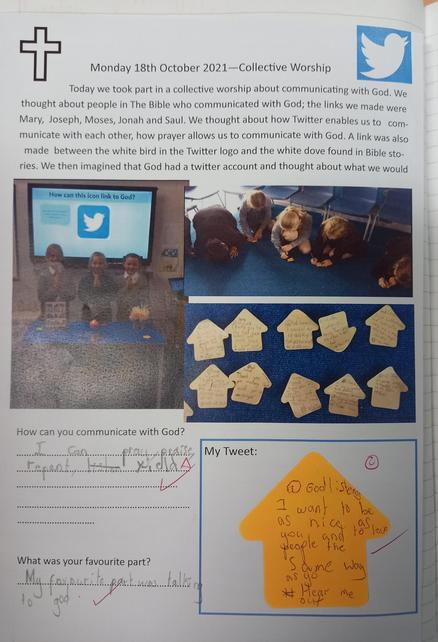 Monday 18th October 2021—Collective Worship
Today we took part in a collective worship about communicating with God. We
thought about people in The Bible who communicated with God; the links we made were
Mary, Joseph, Moses, Jonah and Saul. We thought about how Twitter enables us to com-
municate with each other, how prayer allows us to communicate with God. A link was also
made between the white bird in the Twitter logo and the white dove found in Bible sto-
ries. We then imagined that God had a twitter account and thought about what we would
How can this icon link to God?
How can you communicate with God?
I can pray, praise,
repent, yield
What was your favourite part?
My favourite part was talking
to god.
My Tweet:
God listens
I want to be
as nice as
you and to love
people the
same way
as go
* Hear me
out